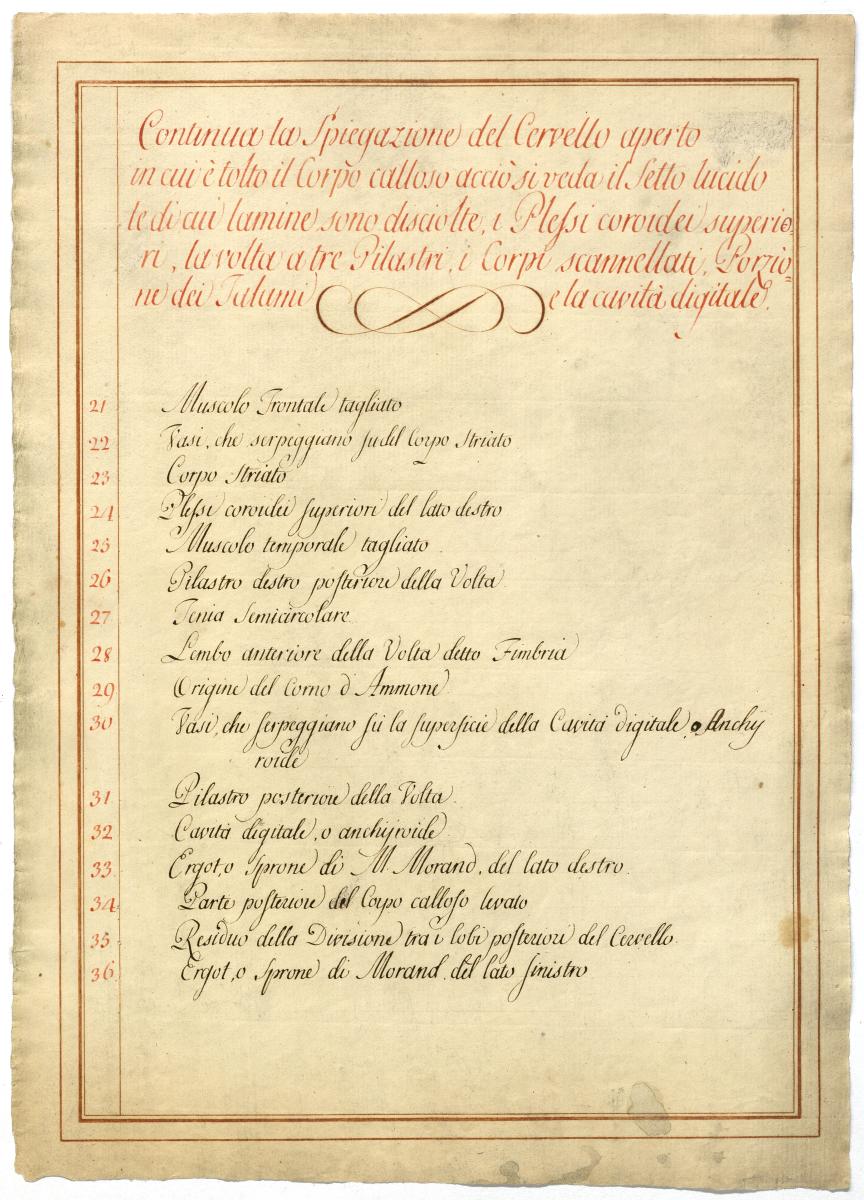 Continua la Spiegazione del Cervello aperto
in cui è tolto il Corpo calloso acciò si veda il Setto lucido
le di cui lamine sono disciolte, i Plessi coroidei superio=
ri, la volta a tre Pilastri, i Corpi scannellati, Porzio=
ne dei Talami e la cavità digitale.
21 Muscolo Frontale tagliato
22 Vasi, che serpeggiano su del Corpo Striato
23 Corpo Striato
24 Plessi coroidei superiori del lato destro
25 Muscolo temporale tagliato.
26 Pilastro destro posteriore della Volta
27 Tenia Semicircolare
28 Lembo anteriore della Volta detto Fimbria
29 Origine del Corno d'Ammone
30 Vasi, che serpeggiano sù la superficie della Cavità digitale, o Anchy
roide
31 Pilastro posteriore della Volta.
32 Cavità digitale, o anchijroide
33 Ergot, o Sprone di M. Morand, del lato destro.
34 Parte posteriore del Corpo calloso levato
35 Residuo della Divisione tra i lobi posteriori del Cervello.
36 Ergot, o Sprone di Morand, del lato sinistro